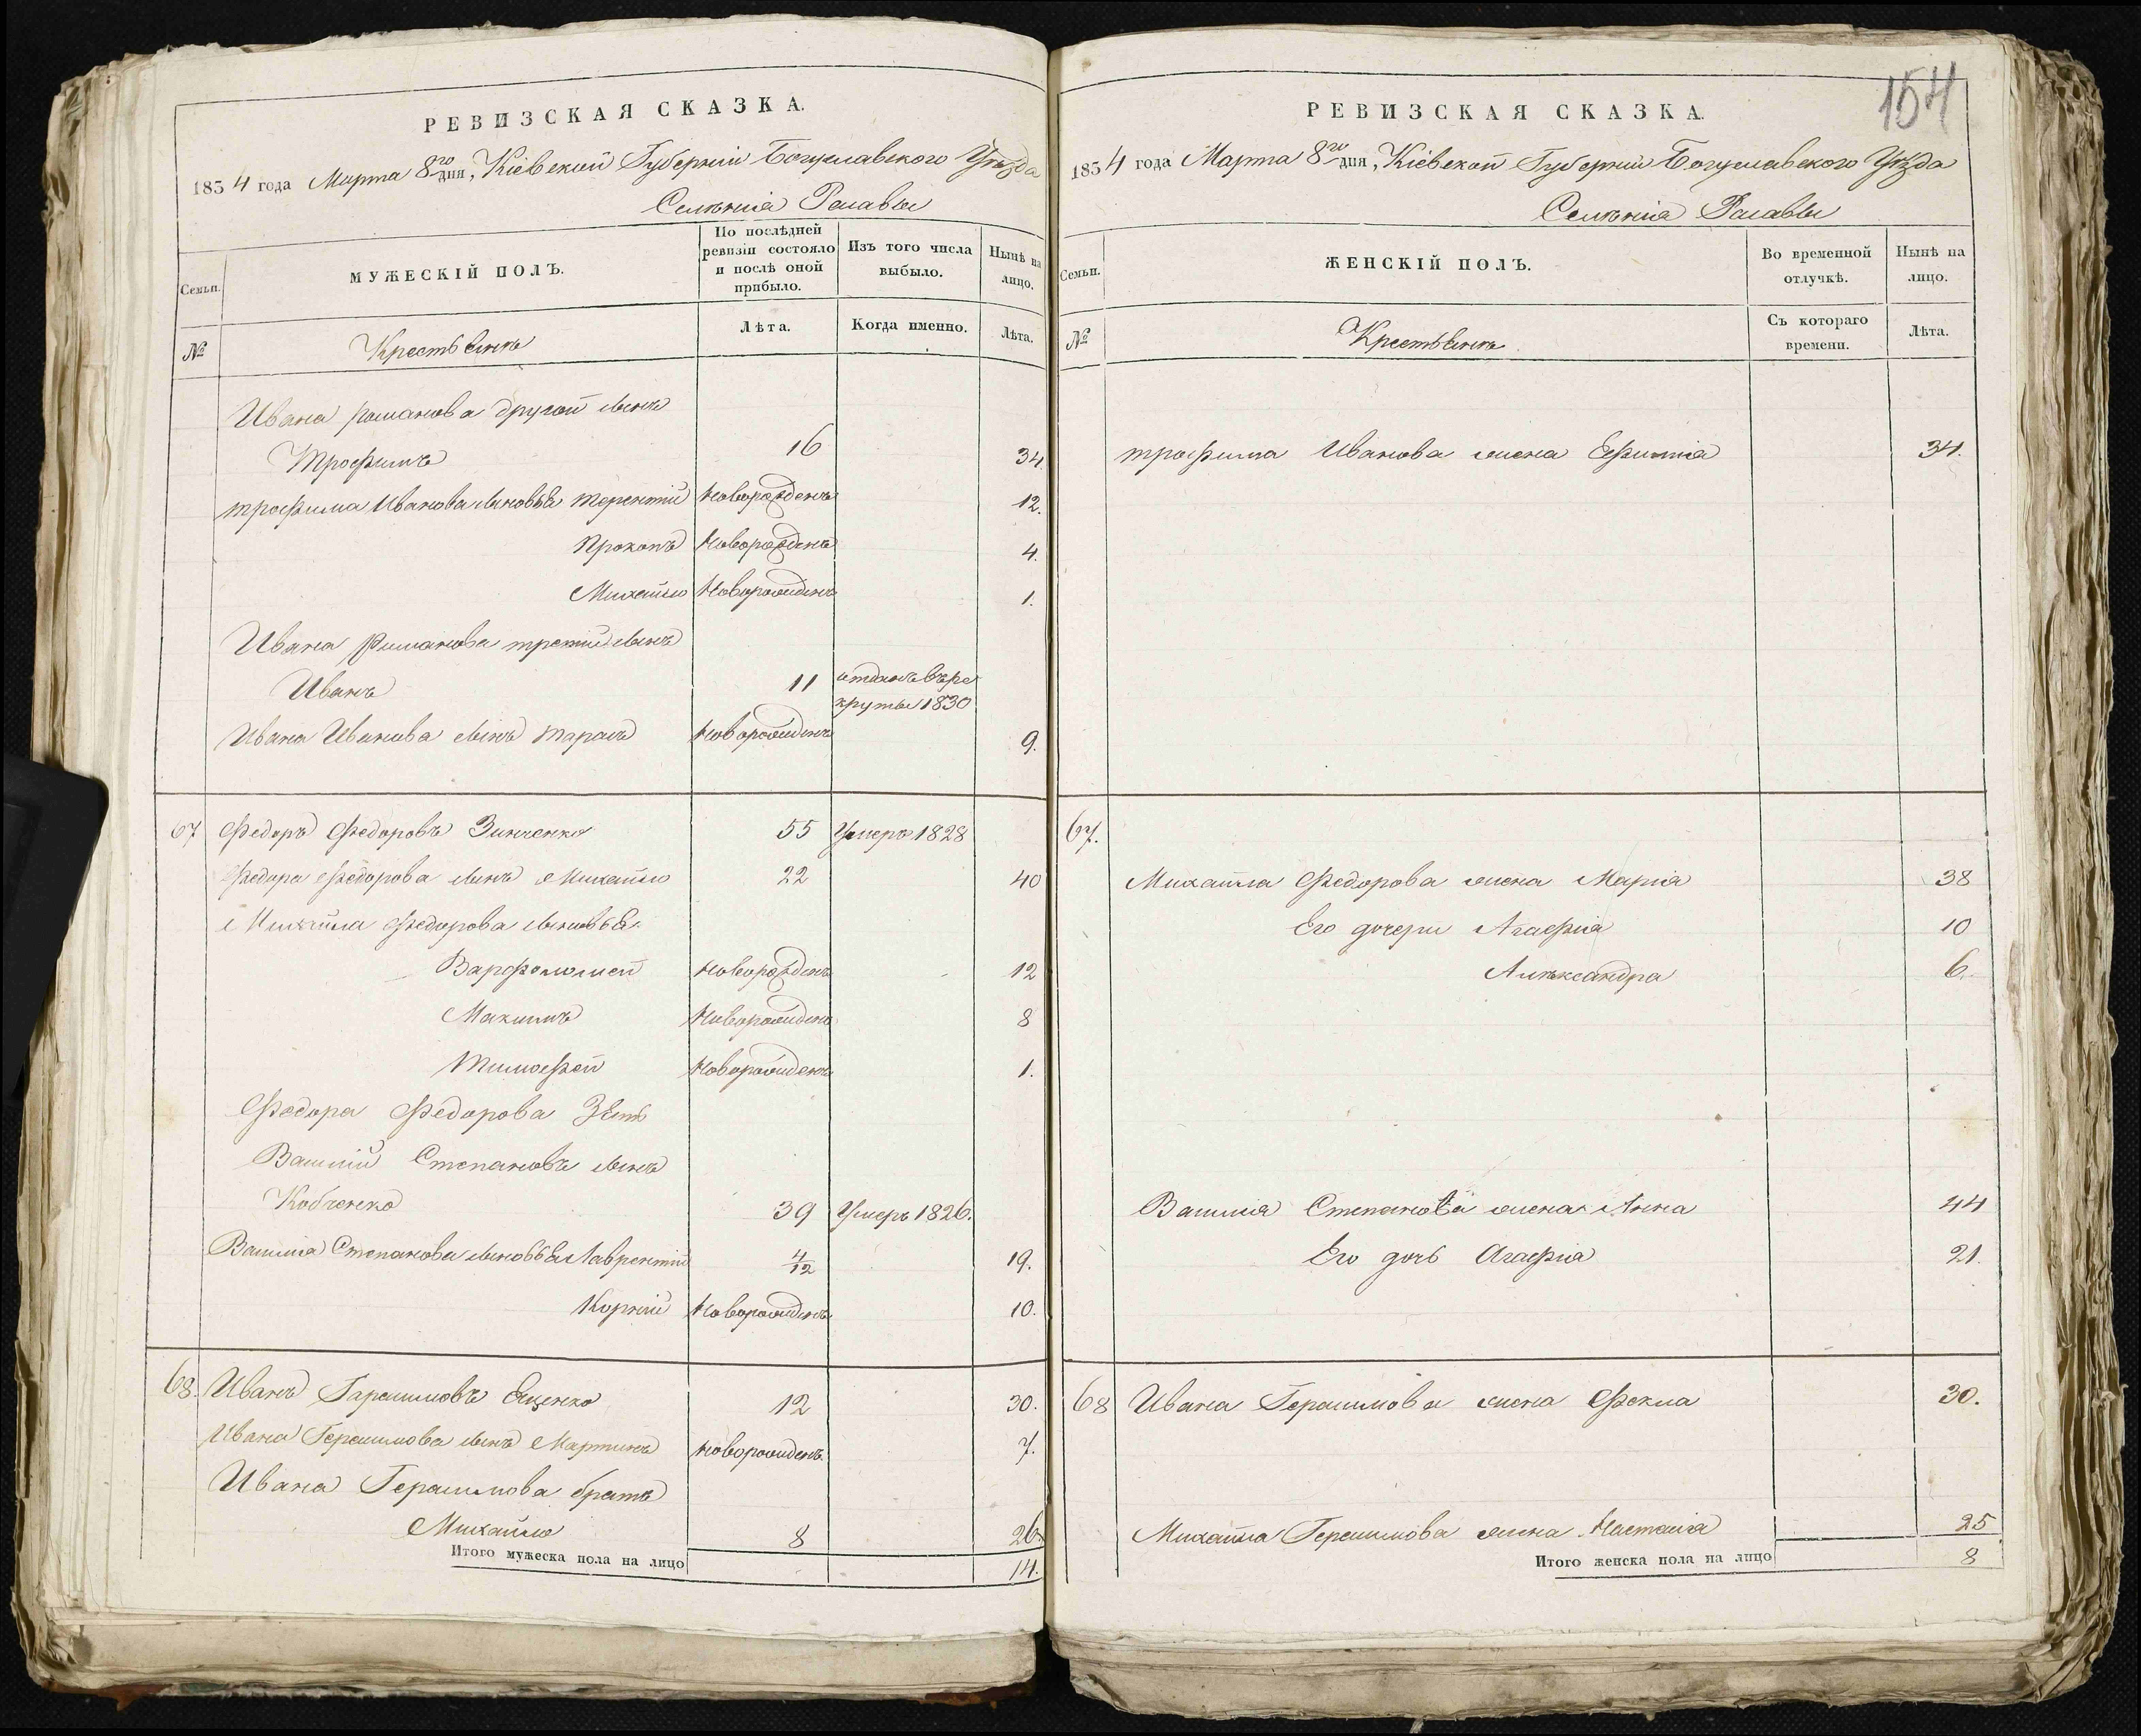 РЕВИЗСКАЯ СКАЗКА.
1854 года Марта 8го дня, Кіевской Губерніи Богуславского Уѣзда
Селенія Росавы
Семьи.
МУЖЕСКІЙ ПОЛЪ.
По послѣдней ревизіи состояло и послѣ оной прибыло.
Изъ того числа выбыло.
Нынѣ на лицо.
№
Крестьянъ
Лѣта.
Когда именно.
Лѣта.
Ивана Романова другой сынъ
Трофимъ 16 34.
Трофима Иванова сыновья Терентій новорожденъ 12.
Прокопъ новорожденъ 4.
Михайло новорожденъ 1.
Ивана Романова третій сынъ
Иванъ 11 отданъ въ ре
круты 1830
Ивана Иванова сынъ Тарасъ новорожденъ 9.
67 Федоръ Федоровъ Зинченко 55 Умеръ 1828
Федора Федорова сынъ Михайло 22 40
Михайла Федорова сыновья
Варфоломей новорожденъ 12
Максимъ новорожденъ 8
Тимофей новорожденъ 1.
Федора Федорова Зять
Василій Степановъ сынъ
Кобченко 39 Умеръ 1826.
Василія Степанова сыновья Лаврентій 4/12 19.
Корній новорожденъ 10.
68. Иванъ Герасимовъ Ященко 12 30.
Ивана Герасимова сынъ Мартинъ новорожденъ 7.
Ивана Герасимова братъ
Михайло 8 26.
Итого мужеска пола на лицо 14.
154
РЕВИЗСКАЯ СКАЗКА.
1854 года Марта 8го дня, Кіевской Губерніи Богуславского Уѣзда
Селенія Росавы
Семьи.
ЖЕНСКІЙ ПОЛЪ.
Во временной отлучкѣ.
Нынѣ на лицо.
№
Крестьянъ
Съ котораго времени.
Лѣта.
Трофима Иванова жена Ефимія 34.
67.
Михайла Федорова жена Марія 38
Его дочери Агафія 10
Александра 6.
Василія Степанова жена Анна 44
Его дочь Агафія 21.
68 Ивана Герасимова жена Фекла 30.
Михайла Герасимова жена Настасія 25
Итого женска пола на лицо 8